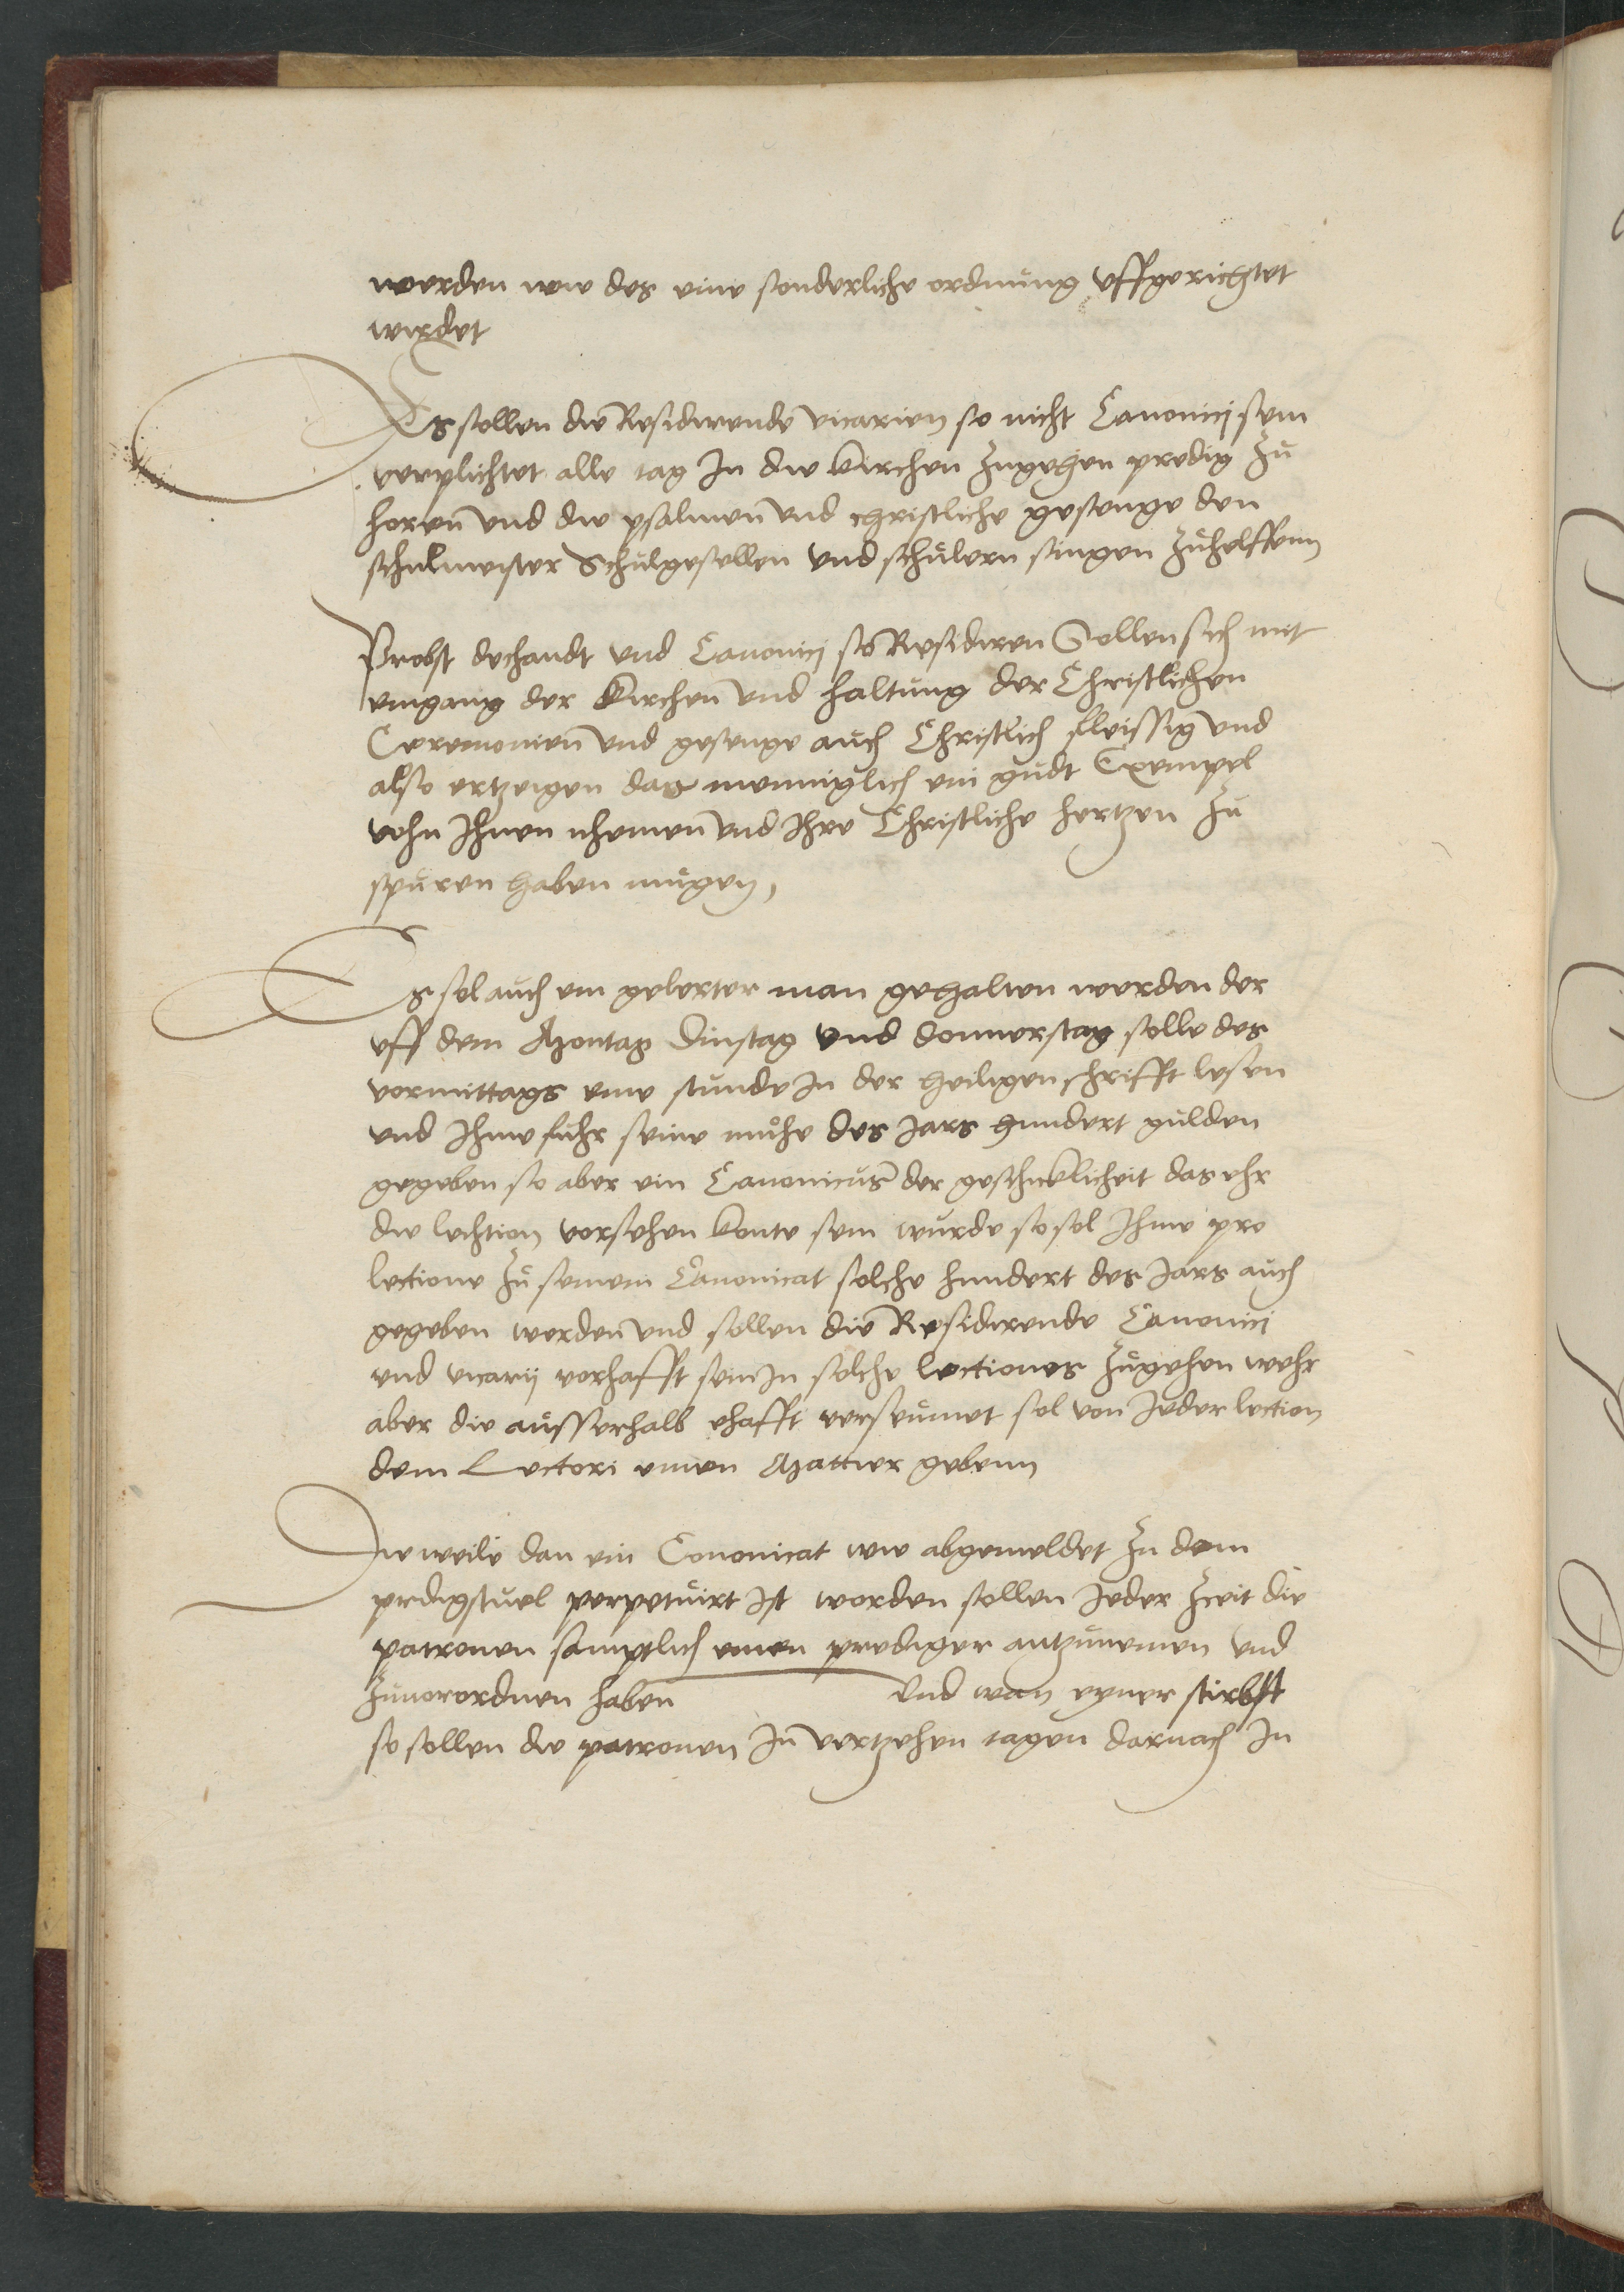 werden wie des eine sonderliche ordnung uffgerichtet
wirdet
Es sollen die Residirende vicarien so nicht Canonici sein
verplichtet alle tag In die kirchen zugehen predig zu
horen und die psalmen und christliche gesenge den
schulmeister Schulgesellen und schulern singen zuhelffenn
Probst dechandt und Canonici so Residiren Sollen sich mit
eingang der kirchen und haltung der Christlichen
Ceremonien und gesenge auch Christlich fleissig und
also ertzeigen das menniglich ein gudt Exempel
vohn Ihnen nhemen und Ihre Christliche hertzen zu
spuren haben mugen,
Es sol auch ein gelerter man gehalten werden der
uff dem Montag Dinstag und donnerstag solle des
vormittags eine stunde In der heiligen schrifft lesen
und Ihme fuhr seine muhe des Jars hundert gulden
gegeben so aber ein Canonicus der geschicklicheit das ehr
die lechtion vorsehen konte sein wurde so sol Ihme pro
lectione zu seinem Canonicat solche hundert des Jars auch
gegeben werden und sollen die Residirende Canonici
und vicarij vorhafft sein In solche lectiones zugehen wehr
aber die ausserhalb ehafft verseumet sol von Jeder lection
dem Lectori einen Mattier gebenn
Die weile dan ein Cononicat wie abgemeldet zu dem
prdigstuel perpetuirt ist worden sollen Jeder zeit die
patronen samptlich einen prediger antzunemen und
zuuorordnen haben und wan eyner stirbst
so sollen die patronen In vertzehen tagen darnach In